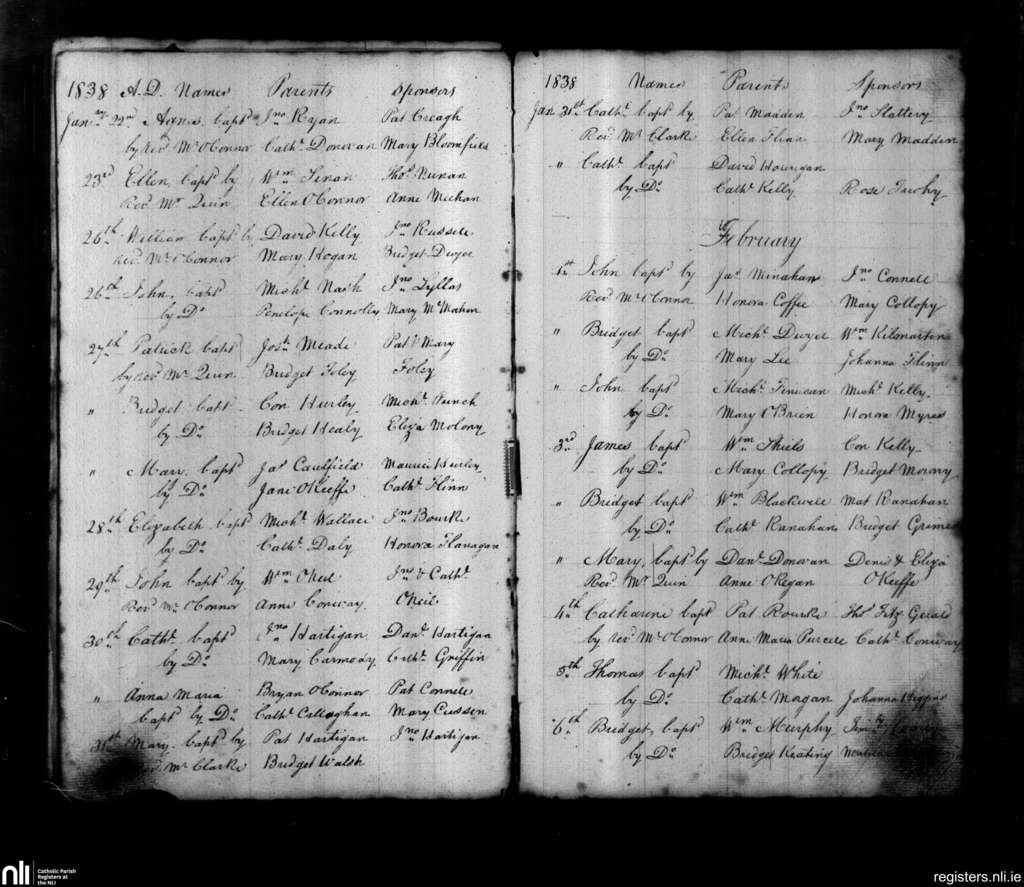 1838 A.D. Names Parents Sponsors
Jany 22nd Agnes bapd Jno Ryan Pat Creagh
by Revd Mr O'Connor Cathe Donovan Mary Bloomfield
23rd Ellen, bapd by Wm Finan Thos Nunan
Revd Mr Quin Ellen O'Connor Anne Meehan
26th William bapd by David Kelly Jno Russell
Revd Mr O'Connor Mary Hogan Bridget Dwyer
26th John, bapd Michl Nash Jno
by Do Penelope Connolly Mary McMahon
27th Patrick bapd Josh Meade Pat & Mary
by Revd Mr Quin Bridget Foley Foley
" Bridget bapt Con Hurley Michl Punch
by Do Bridget Healy Eliza Molony
" Mary bapd Jas Caulfield Maurice Hurley
by Do Jane O'Keeffe Cathe Flinn
28th Elizabeth bapd Michl Wallace Jno Bourke
by Do Cathe Daly Honora Flanagan
29th John bapd by Wm O'Neil Jno & Cathe
Revd Mr O'Connor Anne Conway O'Neil
30th Cathe bapd Jno Hartigan Danl Hartigan
by Do Mary Carmody Cathe Griffin
" Anna Maria Bryan O'Connor Pat Connell
bapd by Do Cathe Callaghan Mary Cussen
31st Mary. bapd by Pat Hartigan Jno Hartigan
Revd Mr Clarke Bridget Walsh
1838 Names Parents Sponsors
Jan 31st Cathe bapd by Pat Madden Jno Slattery
Revd Mr Clarke Ellen Flinn Mary Madden
" Cathe bapd David Hourigan
by Do Cathe Kelly Rose Tuohy
February
1st John bapd by Jas Minahan Jno Connell
Revd Mr O'Connor Honora Coffee Mary Collopy
" Bridget bapd Michl Dwyer Wm Kilmartin
by Do Mary Lee Johanna Flinn
" John bapd Michl Finucan Michl Kelly
by Do Mary O'Brien Honora Myres
3rd James bapd Wm Shiels Con Kelly
by Do Mary Collopy Bridget Morony
" Bridget bapd Wm Blackwell Mat Ranahan
by Do Cathe Ranahan Bridget Grimes
" Mary, bapd by Danl Donovan Denis & Eliza
Revd Mr Quin Anne O'Regan O'Keeffe
4th Catharine bapd Pat Rourke Thos Fitz Gerald
by Revd Mr O'Connor Anne Maria Purcell Cathe Conway
5th Thomas bapd Michl White
by Do Cathe Magan Johanna Higgins
6th Bridget, bapd Wm Murphy
by Do Bridget Keating
nli Catholic Parish
Registers at
the NLI
registers.nli.ie